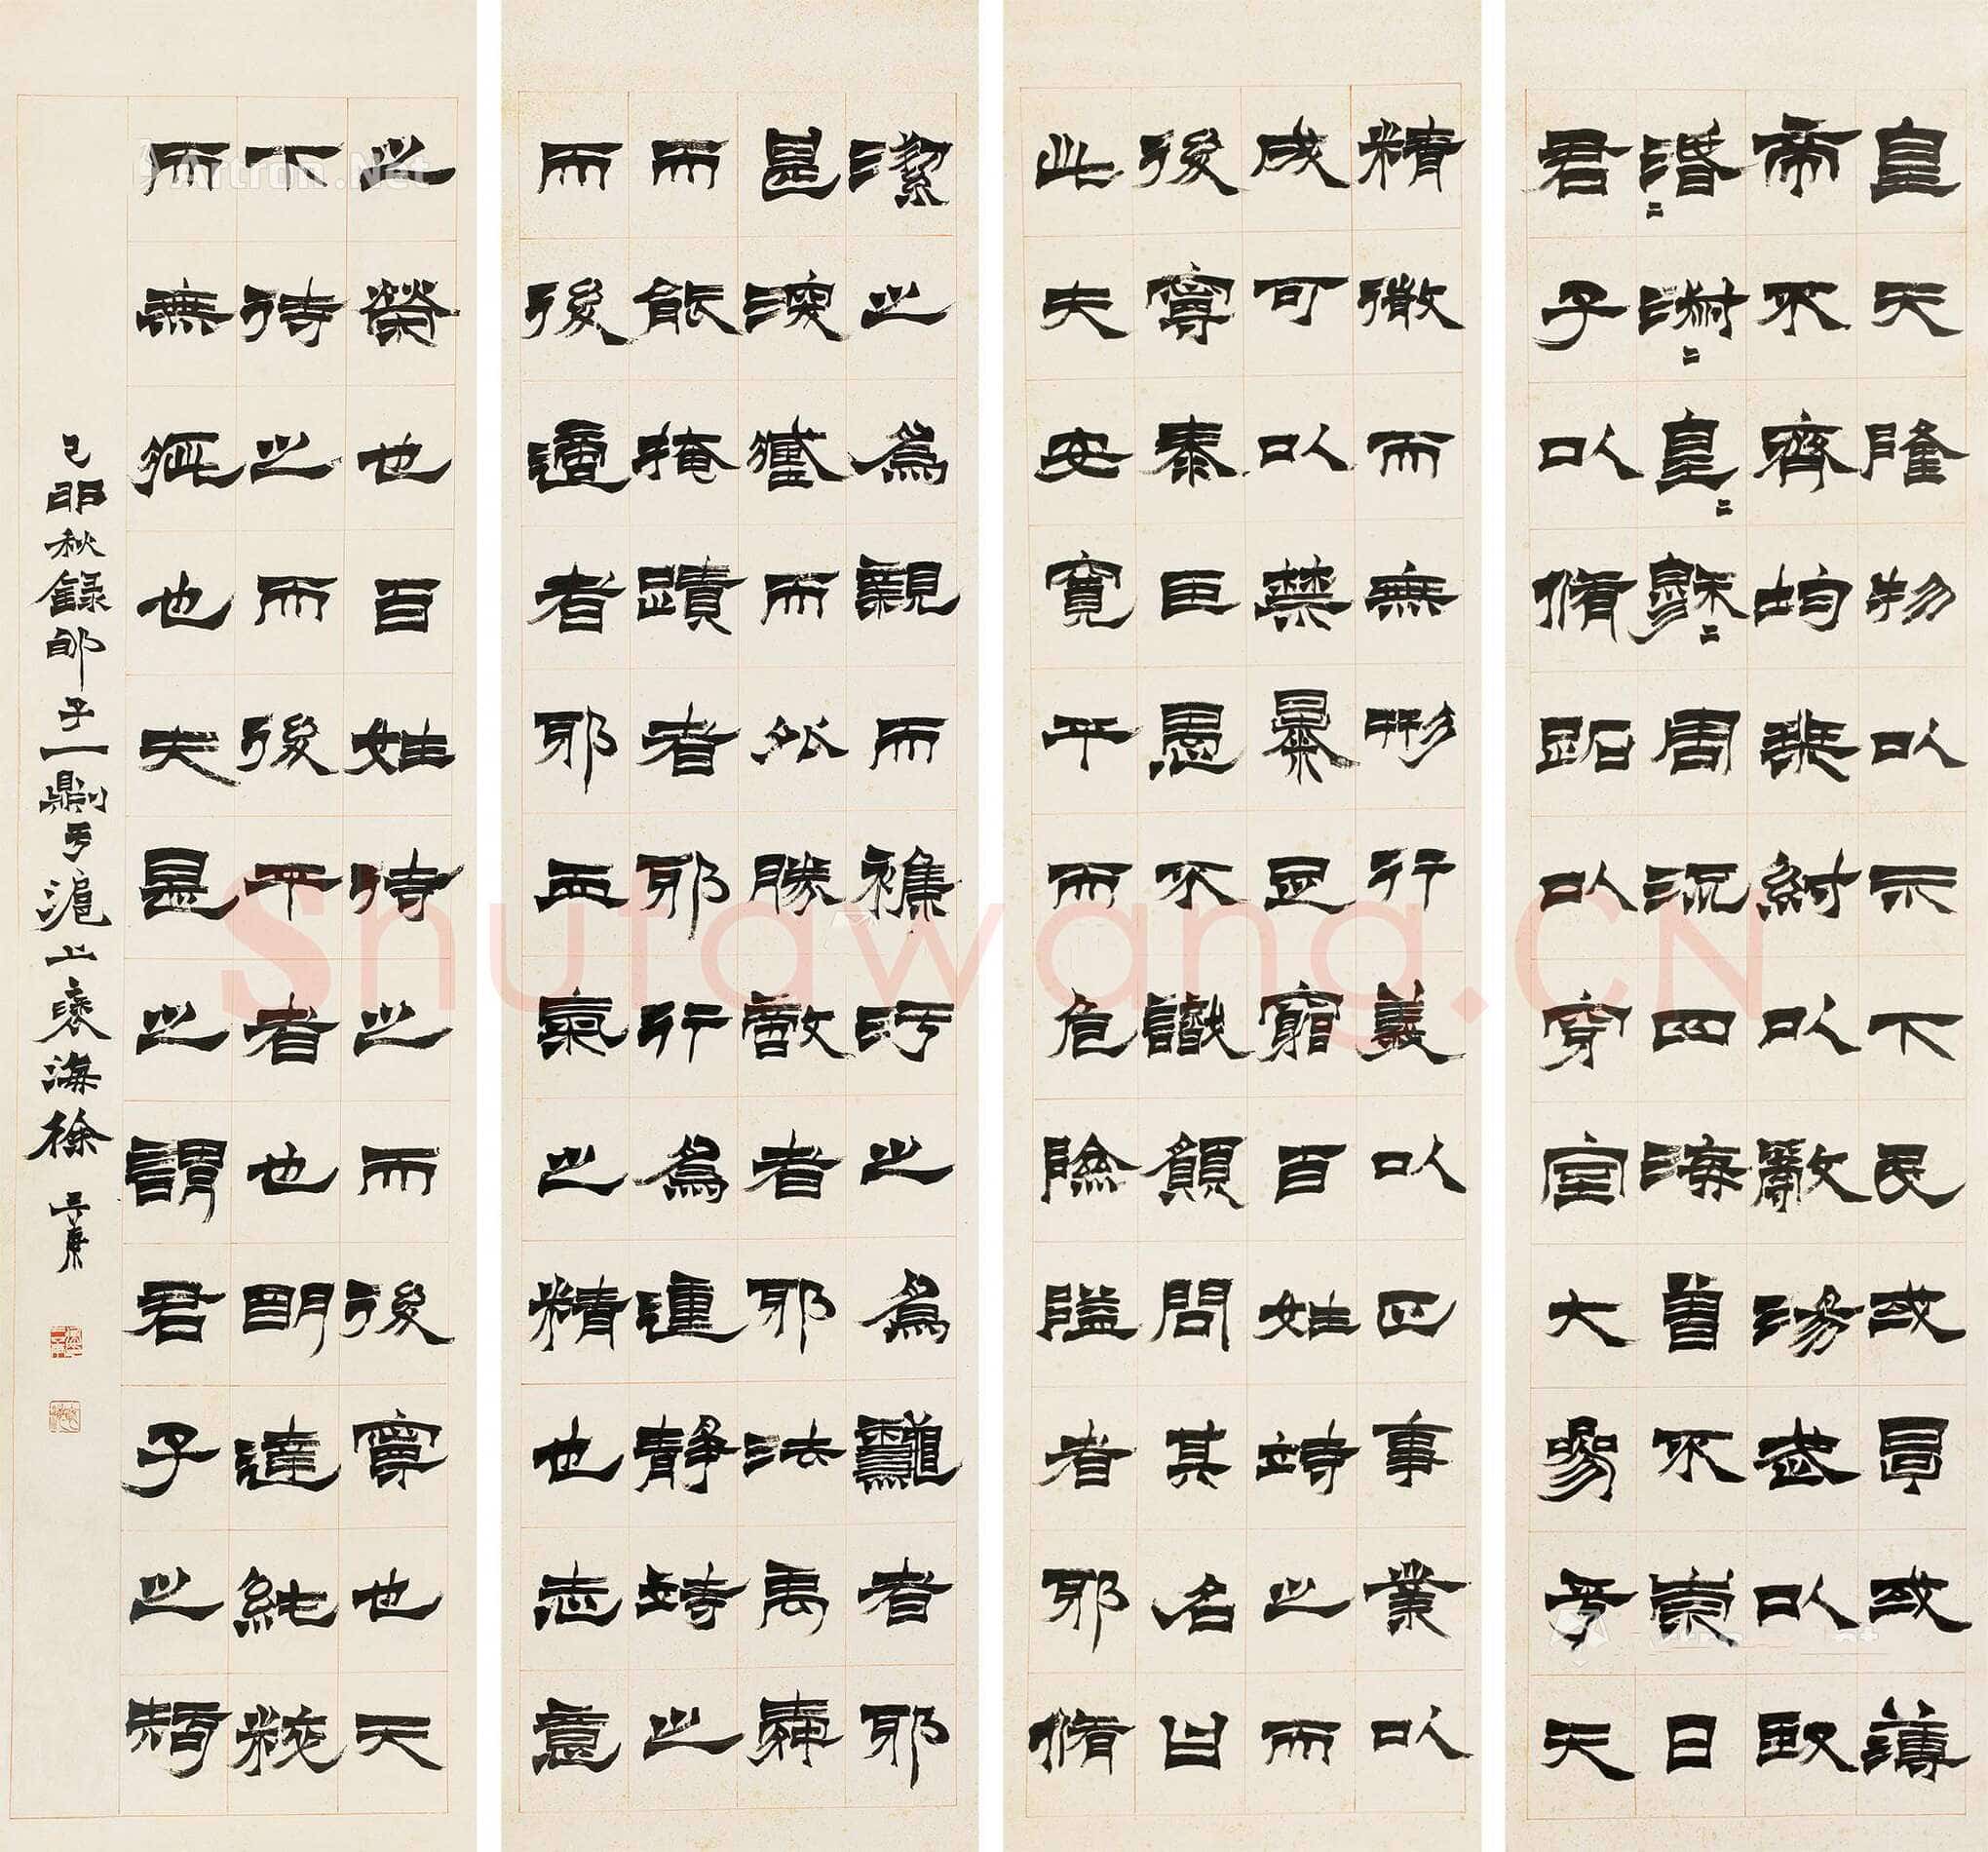 皇天隆物以示下民或厚或薄
帝不齊均桀紂以亂湯武以臤
涽=淑=皇=穆=周流四海曾不崇日
君子以脩跖以穿室大參乎天
精微而無形行義以正事業以
成可以禁暴足窮百姓待之而
後寧泰臣愚不識願問其名曰
此夫安寬平而危險隘者耶脩
潔之為親而雜汙之為者耶
甚深藏而外勝敵者耶法禹舜
而能掩蹟者耶行為動靜待之
而後適者耶血氣之精也志意
之榮也百姓待之而後寧也天
下待之而後平也明達純粹
而無疵也夫是之謂君子之智
己卯秋錄郇子一則于滬上褎海徐三庚
Shufawang.CN
Artron.Net